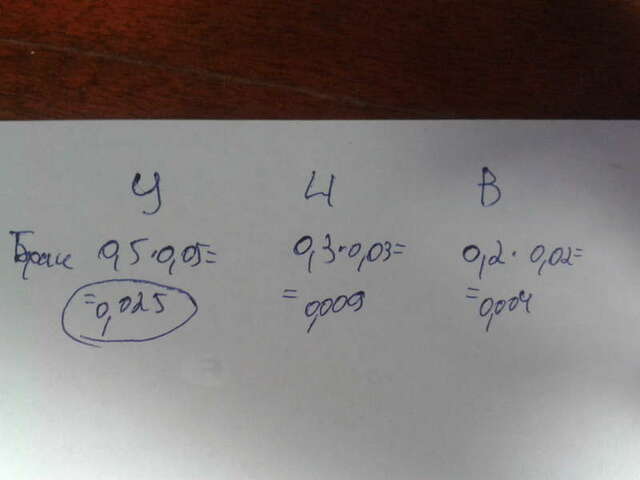 У Ц В
Браки 0,5·0,05= 0,3·0,03= 0,2·0,02=
=0,025 =0,009 =0,004